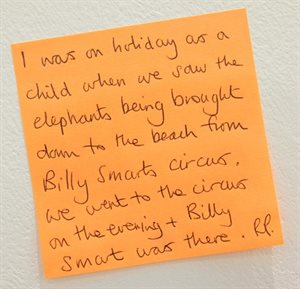 I was on holiday as a
child when we saw the
elephants being brought
down to the beach from
Billy Smarts circus.
we went to the circus
on the evening + Billy
Smart was there. R.P.